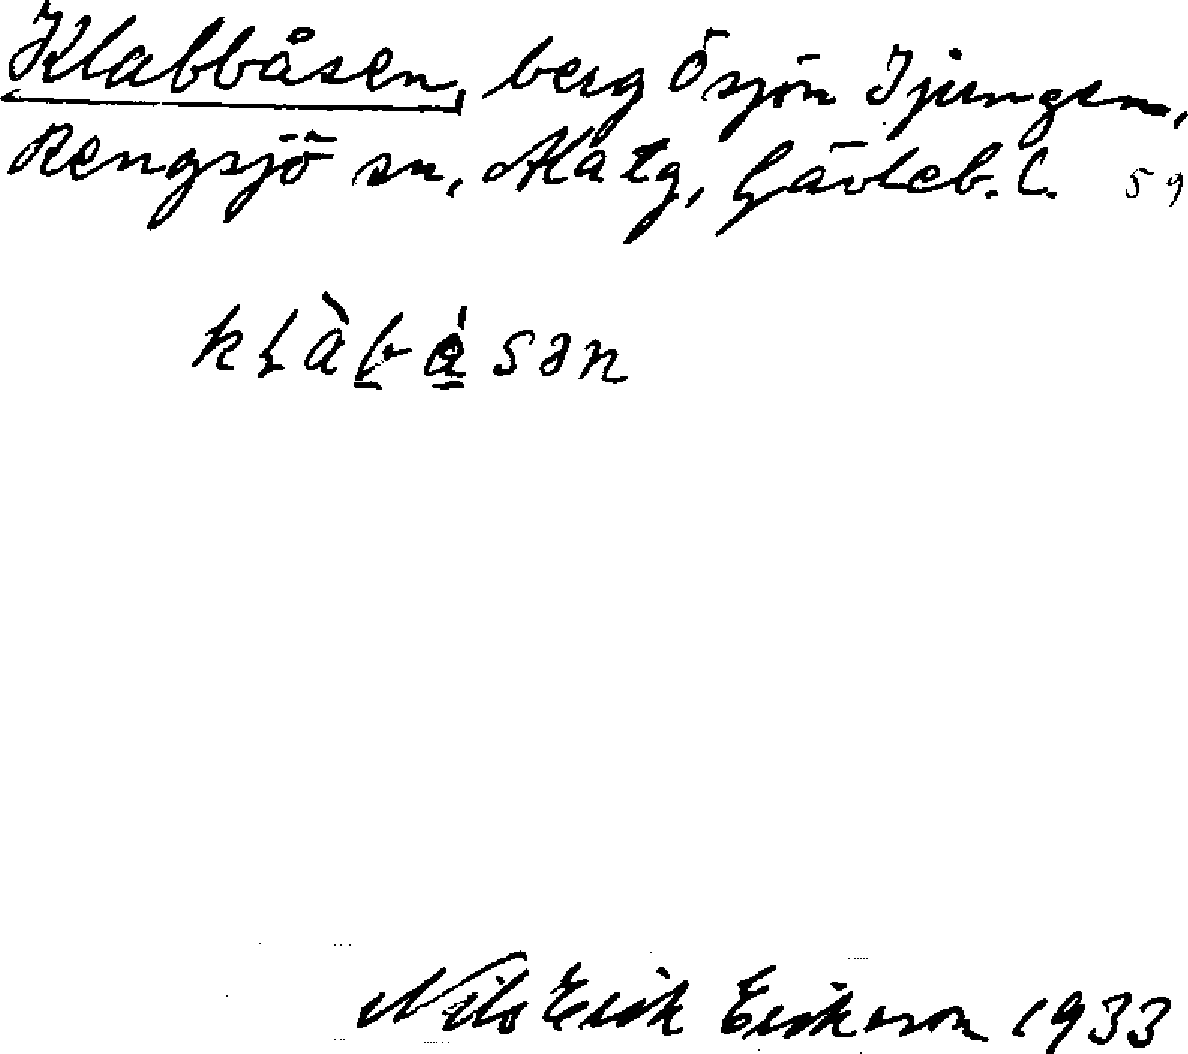 Klabbåsen, berg Ösjön Tjungen,
Rengsjö sn, Katg, Gävleb. l. 59
kḷàb̲å̀sən
Nils Erik Erikson 1933